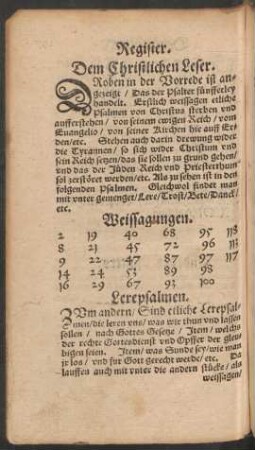 Register.
Dem Christlichen Leser.
DRoben in der Vorrede ist an-
gezeigt / Das der Psalter fünfferley
handelt. Erstlich weissagen etliche
Psalmen von Christus sterben vnd
aufferstehen / von seinem ewigen Reich / vom
Euangelio / von seiner Kirchen hie auff Er-
den/etc. Stehen auch darin drewung wider
die Tyrannen / so sich wider Christum vnd
sein Reich setzen/das sie sollen zu grund gehen/
vnd das der Jüden Reich vnd Priesterthumb
sol zerstöret werden/etc. Als zu sehen ist in den
folgenden Psalmen. Gleichwol findet man
mit vnter gemenget/Lere/Trost/Bete/Danck/
etc.
Weissagungen.
2 19 40 68 95 118
8 21 45 72 96
9 22 47 87 97 117
14 24 53 89 98
16 29 67 93 100
Lerepsalmen.
ZVm andern / Sind etliche Lerepsal-
men/die leren vns/was wir thun vnd lassen
sollen / nach Gottes Gesetze / Item/ welchs
der rechte Gottesdienst vnd Opffer der gleu-
bigen seien. Item/ was Sunde sey/wie man
jr los / vnd fur Gott gerecht werde/etc. Da
lauffen auch mit vnter die andern stücke/ als
weissagen/